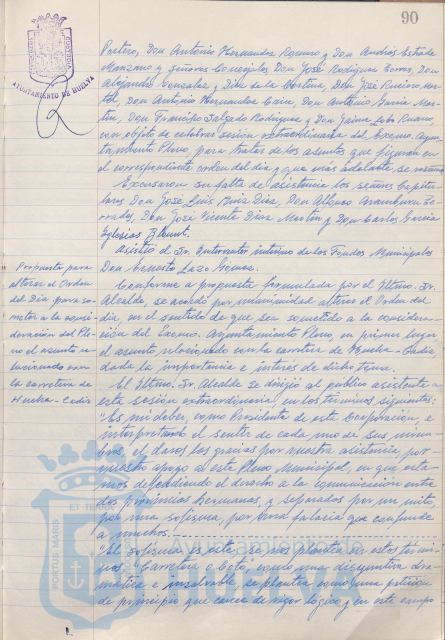 90
AYUNTAMIENTO DE HUELVA
Portero, Don Antonio Hernandez Romero y Don Andrés Estrade
Manzano y señores Concejales Don José Rodriguez Torres, Don
Alejandro Gonzalez y Diaz de la Don José Ruciero
Don Antonio Hernandez Don Antonio Garcia Mar-
tin, Don Francisco Salgado Rodriguez y Don Jaime Lobo Ruano,
con objeto de celebrar sesión extraordinaria del Excmo. Ayun-
tamiento Pleno, para tratar de los asuntos que figuran en
el correspondiente orden del dia, y que más adelante se
Excusaron su falta de asistencia los señores Capitu-
lares Don José Luis Ruiz Diaz, Don Alfonso Aramburu Te-
rrades, Don José Vicente Diaz Martin y Don Carlos Garcia
Iglesias
Asistio el Sr. Interventor interino de los Fondos Municipales
Don Ernesto Lazo Gomez.
Propuesta para
alterar el Orden
del Dia para so-
meter a la consi-
deración del Ple-
no el asunto re-
lacionado con
la carretera de
Huelva-Cadiz
Conforme a propuesta formulada por el Iltmo. Sr.
Alcalde, se acordó por unanimidad alterar el Orden del
dia, en el sentido de que sea sometido a la considera-
ción del Excmo. Ayuntamiento Pleno, en primer lugar
el asunto relacionado con la carretera de Huelva-Cadiz
dada la importancia e interes de dicho tema.
El Iltmo. Sr. Alcalde se dirigió al público asistente a
esta sesión extraordinaria, en los términos siguientes:
"Es mi deber, como Presidente de esta Corporación, e
interpretando el sentir de cada uno de sus miem-
bros, el daros las gracias por vuestra asistencia, por
vuestro apoyo a este Pleno Municipal, en que esta-
mos defendiendo el derecho a la comunicación entre
dos provincias hermanas, y separadas por un mito
por una sofisma, por una falacia que confunde
a muchos.
"El sofisma es este; se nos plantea en estos térmi-
nos: "Carretera o Coto", como una disyuntiva dra-
mática e insalvable, se plantea como una petición
de principio que carece de rigor lógico, y en este campo
ET TERRAE
PORTUS MARIS
Ayuntamiento de
HUELVA